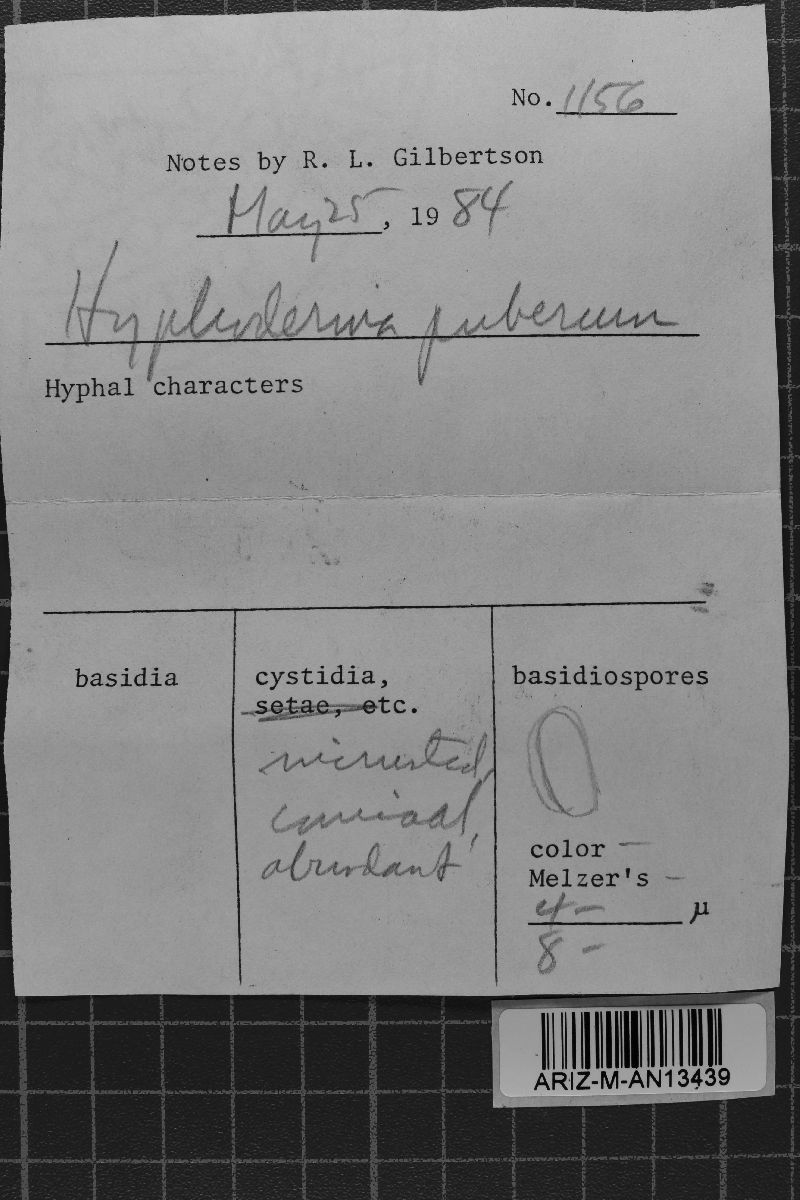 No. 1156
Notes by R. L. Gilbertson
May 25, 19 84
Hyphoderma puberum
Hyphal characters
basidia
cystidia,
setae, etc.
incrusted,
conical,
abundant
basidiospores
color —
Melzer's —
4 — μ
8 —
ARIZ-M-AN13439